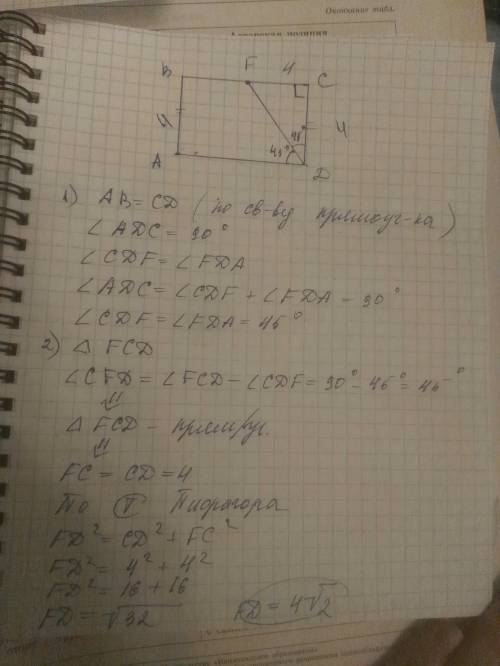 Окончание табл.
B
F
4
C
4
4
45°
45°
A
D
1) AB = CD (по св-ву прямоуг-ка)
∠ADC = 90°
∠CDF = ∠FDA
∠ADC = ∠CDF + ∠FDA = 90°
∠CDF = ∠FDA = 45°
2) △ FCD
∠CFD = ∠FCD - ∠CDF = 90° - 45° = 45°
⇓
△ FCD - прямоуг.
⇓
FC = CD = 4
По Т Пифагора
FD² = CD² + FC²
FD² = 4² + 4²
FD² = 16 + 16
FD = √32 FD = 4√2